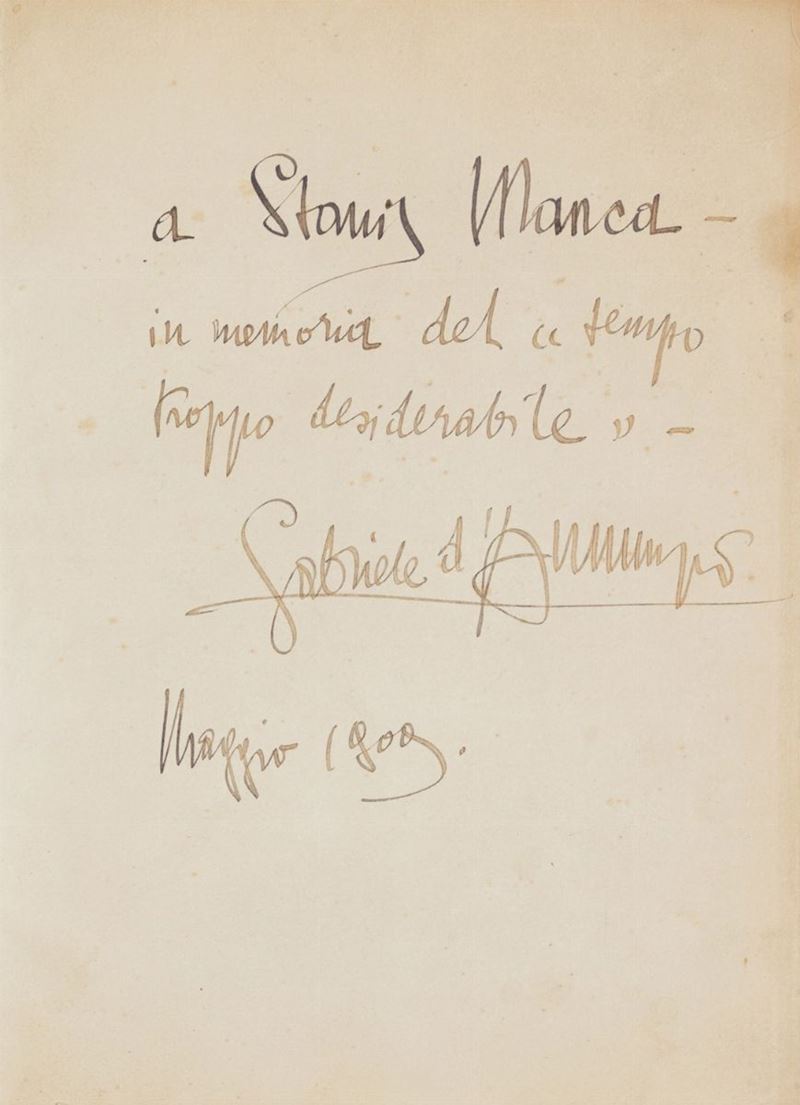 a Stanis Manca –
in memoria del « tempo
troppo desiderabile » –
Gabriele d'Annunzio
Maggio 1909.